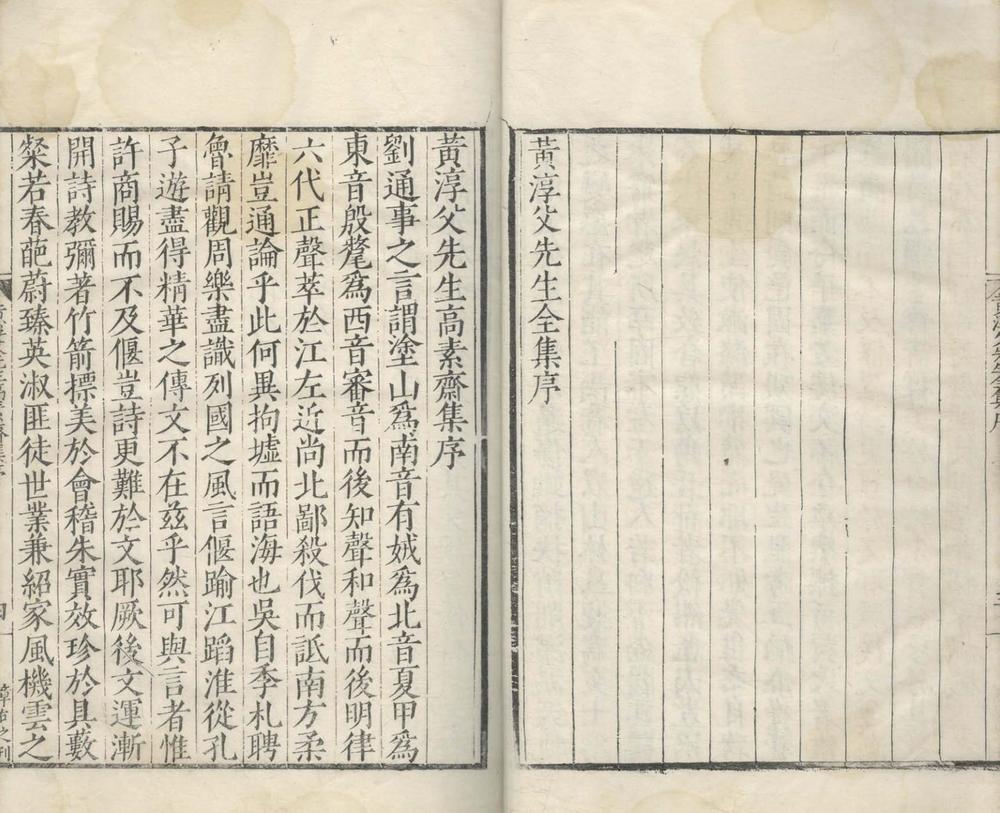 黃淳父先生全集序
黃淳父先生高素齋集序
劉通事之言謂塗山爲南音有娀爲北音夏甲爲
東音殷氂爲西音審音而後知聲和聲而後明律
六代正聲萃於江左近尚北鄙殺伐而詆南方柔
靡豈通論乎此何異拘墟而語海也吳自季札聘
魯請觀周樂盡識列國之風言偃踰江蹈淮從孔
子遊盡得精華之傳文不在茲乎然可與言者惟
許商賜而不及偃豈詩更難於文耶厥後文運漸
開詩教彌著竹箭標美於會稽朱實效珍於具藪
粲若春葩蔚臻英淑匪徒世業兼紹家風機雲之
四
章右之刊